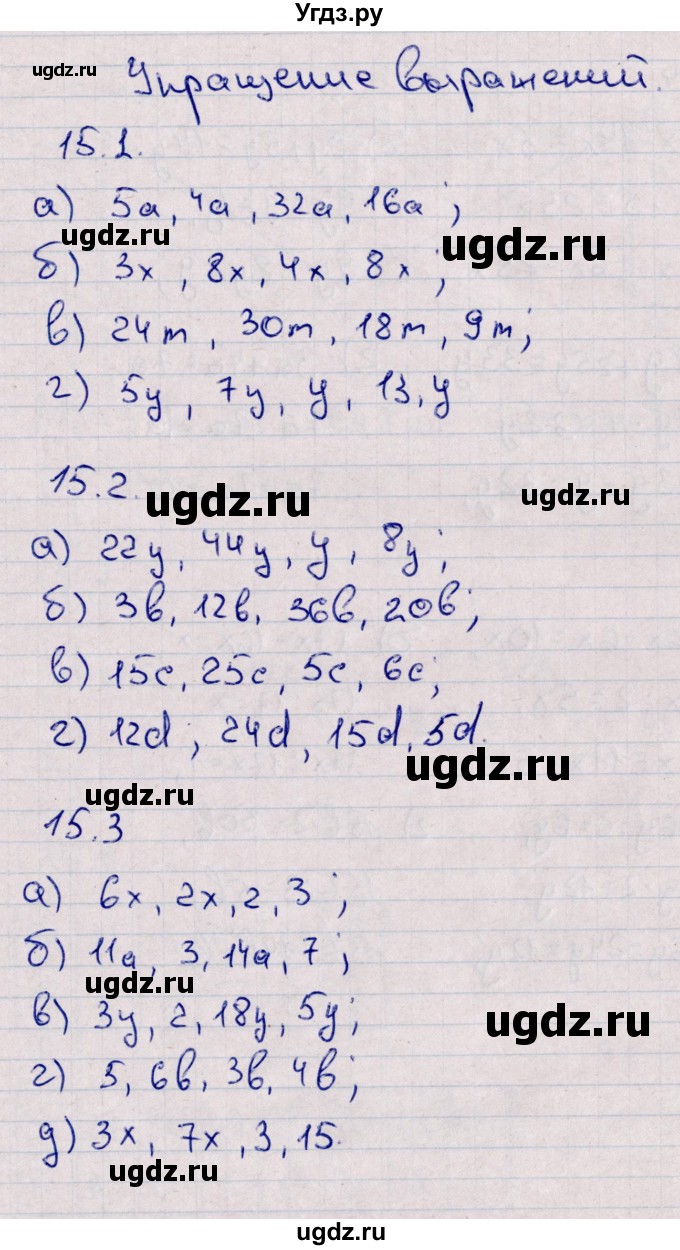 Угдз.ру
ugdz.ru
Упращение выражений.
15.1.
а) 5а, 4а, 32а, 16а;
ugdz.ru
ugdz.ru
б) 3х, 8х, 4х, 8х;
в) 24m, 30m, 18m, 9m;
г) 5y, 7y, y, 13, y
15.2.
ugdz.ru
ugdz.ru
а) 22y, 44y, y, 8y;
б) 3в, 12в, 36в, 20в;
в) 15с, 25с, 5с, 6с;
г) 12d, 24d, 15d, 5d.
ugdz.ru
ugdz.ru
15.3
а) 6х, 2х, 2, 3;
б) 11а, 3, 14а, 7;
ugdz.ru
в) 3y, 2, 18y, 5y;
ugdz.ru
г) 5, 6в, 3в, 4в;
д) 3х, 7х, 3, 15.
ugdz.ru
ugdz.ru